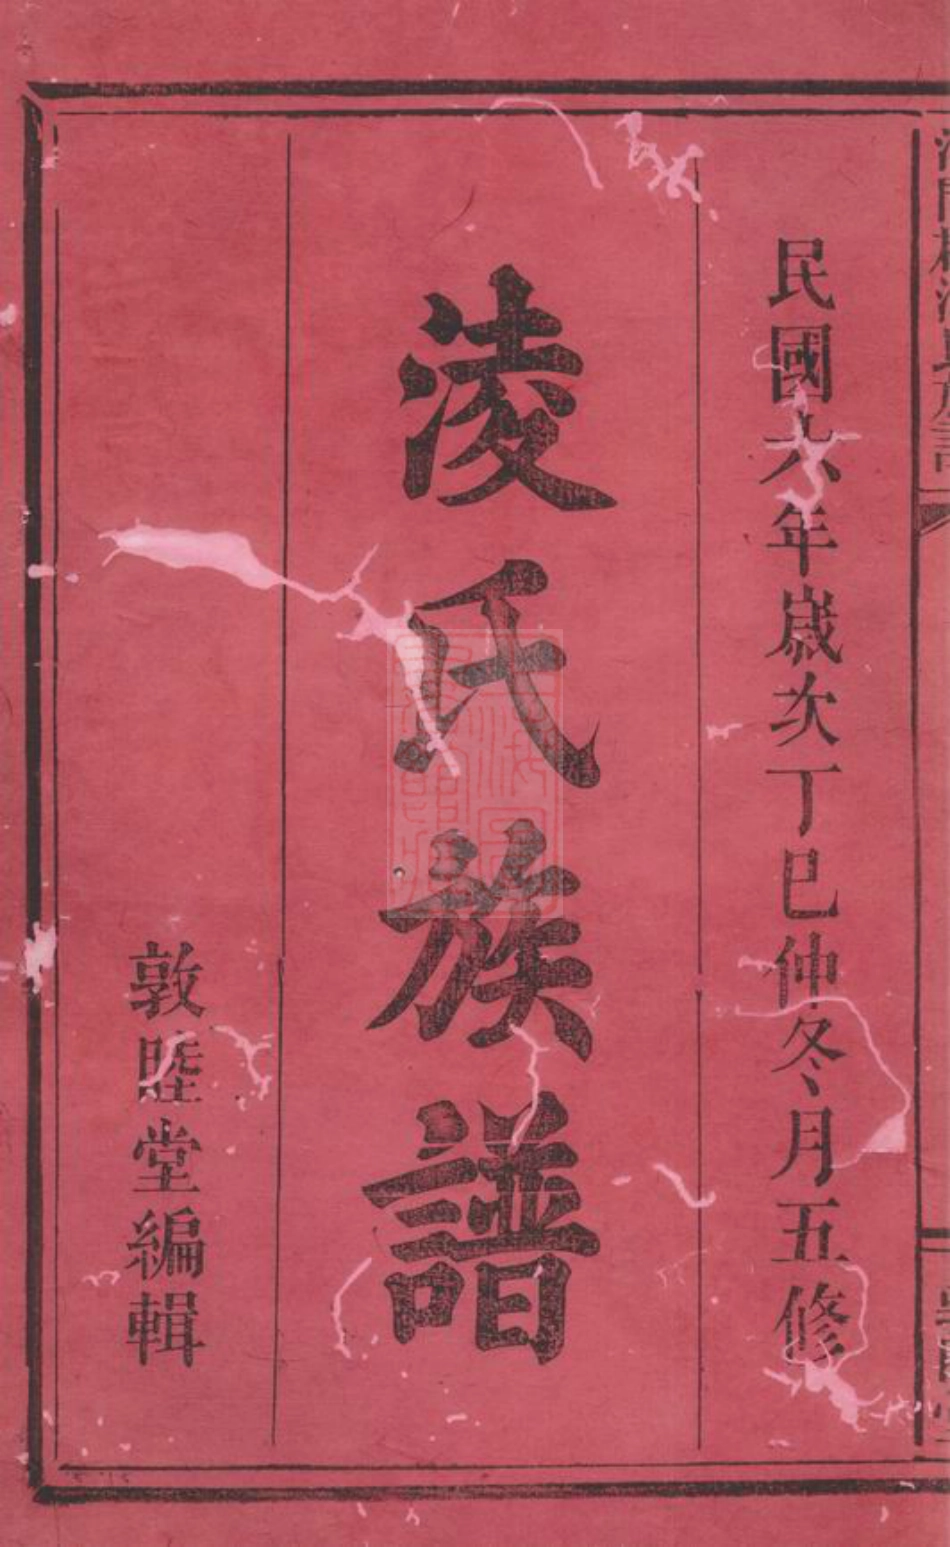 民國六年歲次丁巳仲冬月五修
淩氏族譜
敦睦堂編輯